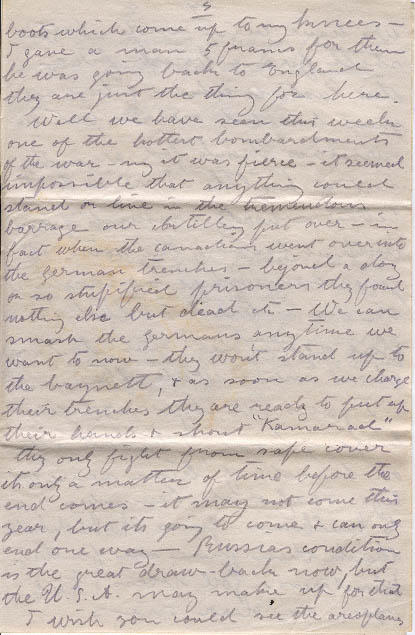 5
boots which come up to my knees -
I gave a man 5 francs for them
he was going back to England
they are just the thing for here.
Well we have seen this week
one of the hottest bombardments
of the war - my it was fierce - it seemed
impossible that anything could
stand or live in the tremendous
barrage our artillery put over - in
fact when the canadians went over into
the german trenches - beyond a doz
or so stupified prisoners they found
nothing else but dead etc - We can
smash the germans any time we
want to now - they wont stand up to
the baynett, & as soon as we charge
their trenches they are ready to put up
their hands & shout "Kamaraad"
they only fight from safe cover
its only a matter of time before the
end comes - it may not come this
year, but its going to come & can only
end one way - Russias condition
is the great draw-back now, but
the U.S.A. may make up for that
I wish you could see the areoplanes